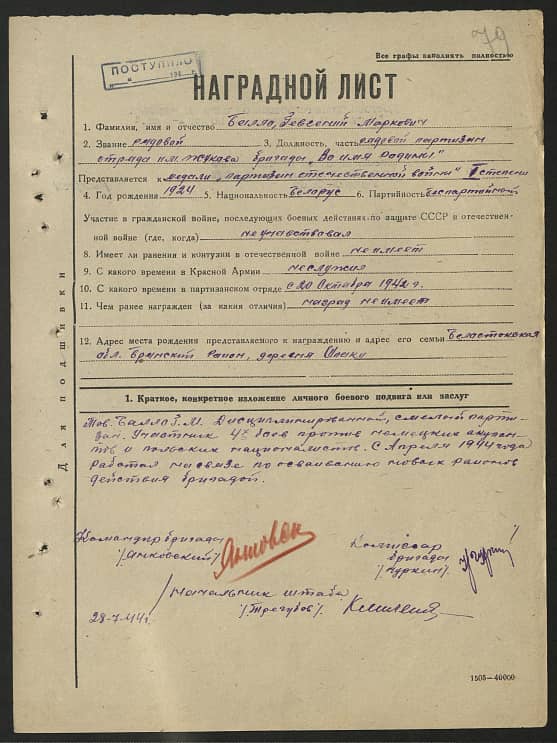 79
Все графы заполнять полностью
ПОСТУПИЛО
194
НАГРАДНОЙ ЛИСТ
1. Фамилия, имя и отчество Балло, Зевсений Маркович
2. Звание рядовой 3. Должность, часть рядовой партизан
отряда им. Жукова бригады „Во имя Родины"
Представляется к медали „партизан отечественной войны" I степени
4. Год рождения 1924 5. Национальность Беларус 6. Партийность беспартийной
Участие в гражданской войне, последующих боевых действиях по защите СССР и отечествен-
ной войне (где, когда) неучавствовал
8. Имеет ли ранения и контузии в отечественной войне неимеет
9. С какого времени в Красной Армии неслужил
10. С какого времени в партизанском отряде с 20 Октября 1942 г.
11. Чем ранее награжден (за какие отличия) наград неимеет
12. Адрес места рождения представляемого к награждению и адрес его семьи Беластокская
обл. Брянский район, деревня
Для подшивки
1. Краткое, конкретное изложение личного боевого подвига или заслуг
Тов. Балло З. М. Дисциплинированной, смелый парти-
зан. Участник 47 боев против немецких
и польских националистов. С Апреля 1944 года
работал насвязе по осваиванию новых районов
действия бригадой.
Командир бригады
/Янковский/
Комиссар
бригады
/Чуркин/
Начальник штаба
/Трегубов/
28-7-44 г.
1505—40000